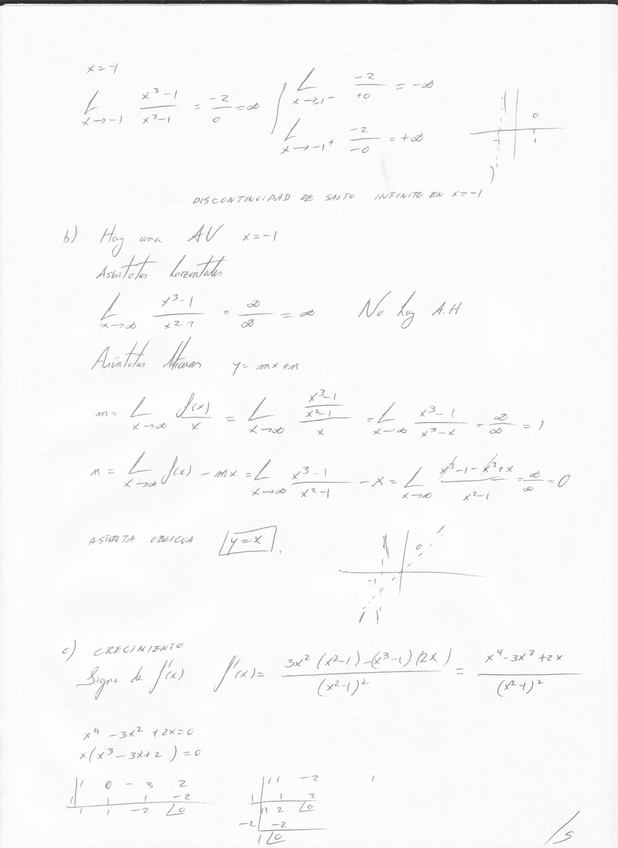 x=-1
L x→-1 (x³-1)/(x²-1) = -2/0 = ∞
L x→-1⁻ -2/+0 = -∞
L x→-1⁺ -2/-0 = +∞
DISCONTINUIDAD DE SALTO INFINITO EN x=-1
b) Hay una AV x=-1
Asíntotas horizontales
L x→∞ (x³-1)/(x²-1) = ∞/∞ = ∞ No hay A.H
Asíntotas oblicuas y=mx+n
m= L x→∞ f(x)/x = L x→∞ ((x³-1)/(x²-1))/x = L x→∞ (x³-1)/(x³-x) = ∞/∞ = 1
n= L x→∞ f(x)-mx = L x→∞ (x³-1)/(x²-1) - x = L x→∞ (x³-1-x³+x)/(x²-1) = ∞/∞ = 0
ASÍNTOTA OBLICUA y=x.
-1
c) CRECIMIENTO
Signo de f'(x) f'(x)= (3x²(x²-1)-(x³-1)(2x))/(x²-1)² = (x⁴-3x²+2x)/(x²-1)²
x⁴-3x²+2x=0
x(x³-3x+2)=0
1 0 -3 2
1 1 1 -2
1 1 -2 0
1 1 -2
1 1 2
1 2 0
-2 -2
1 0
/5